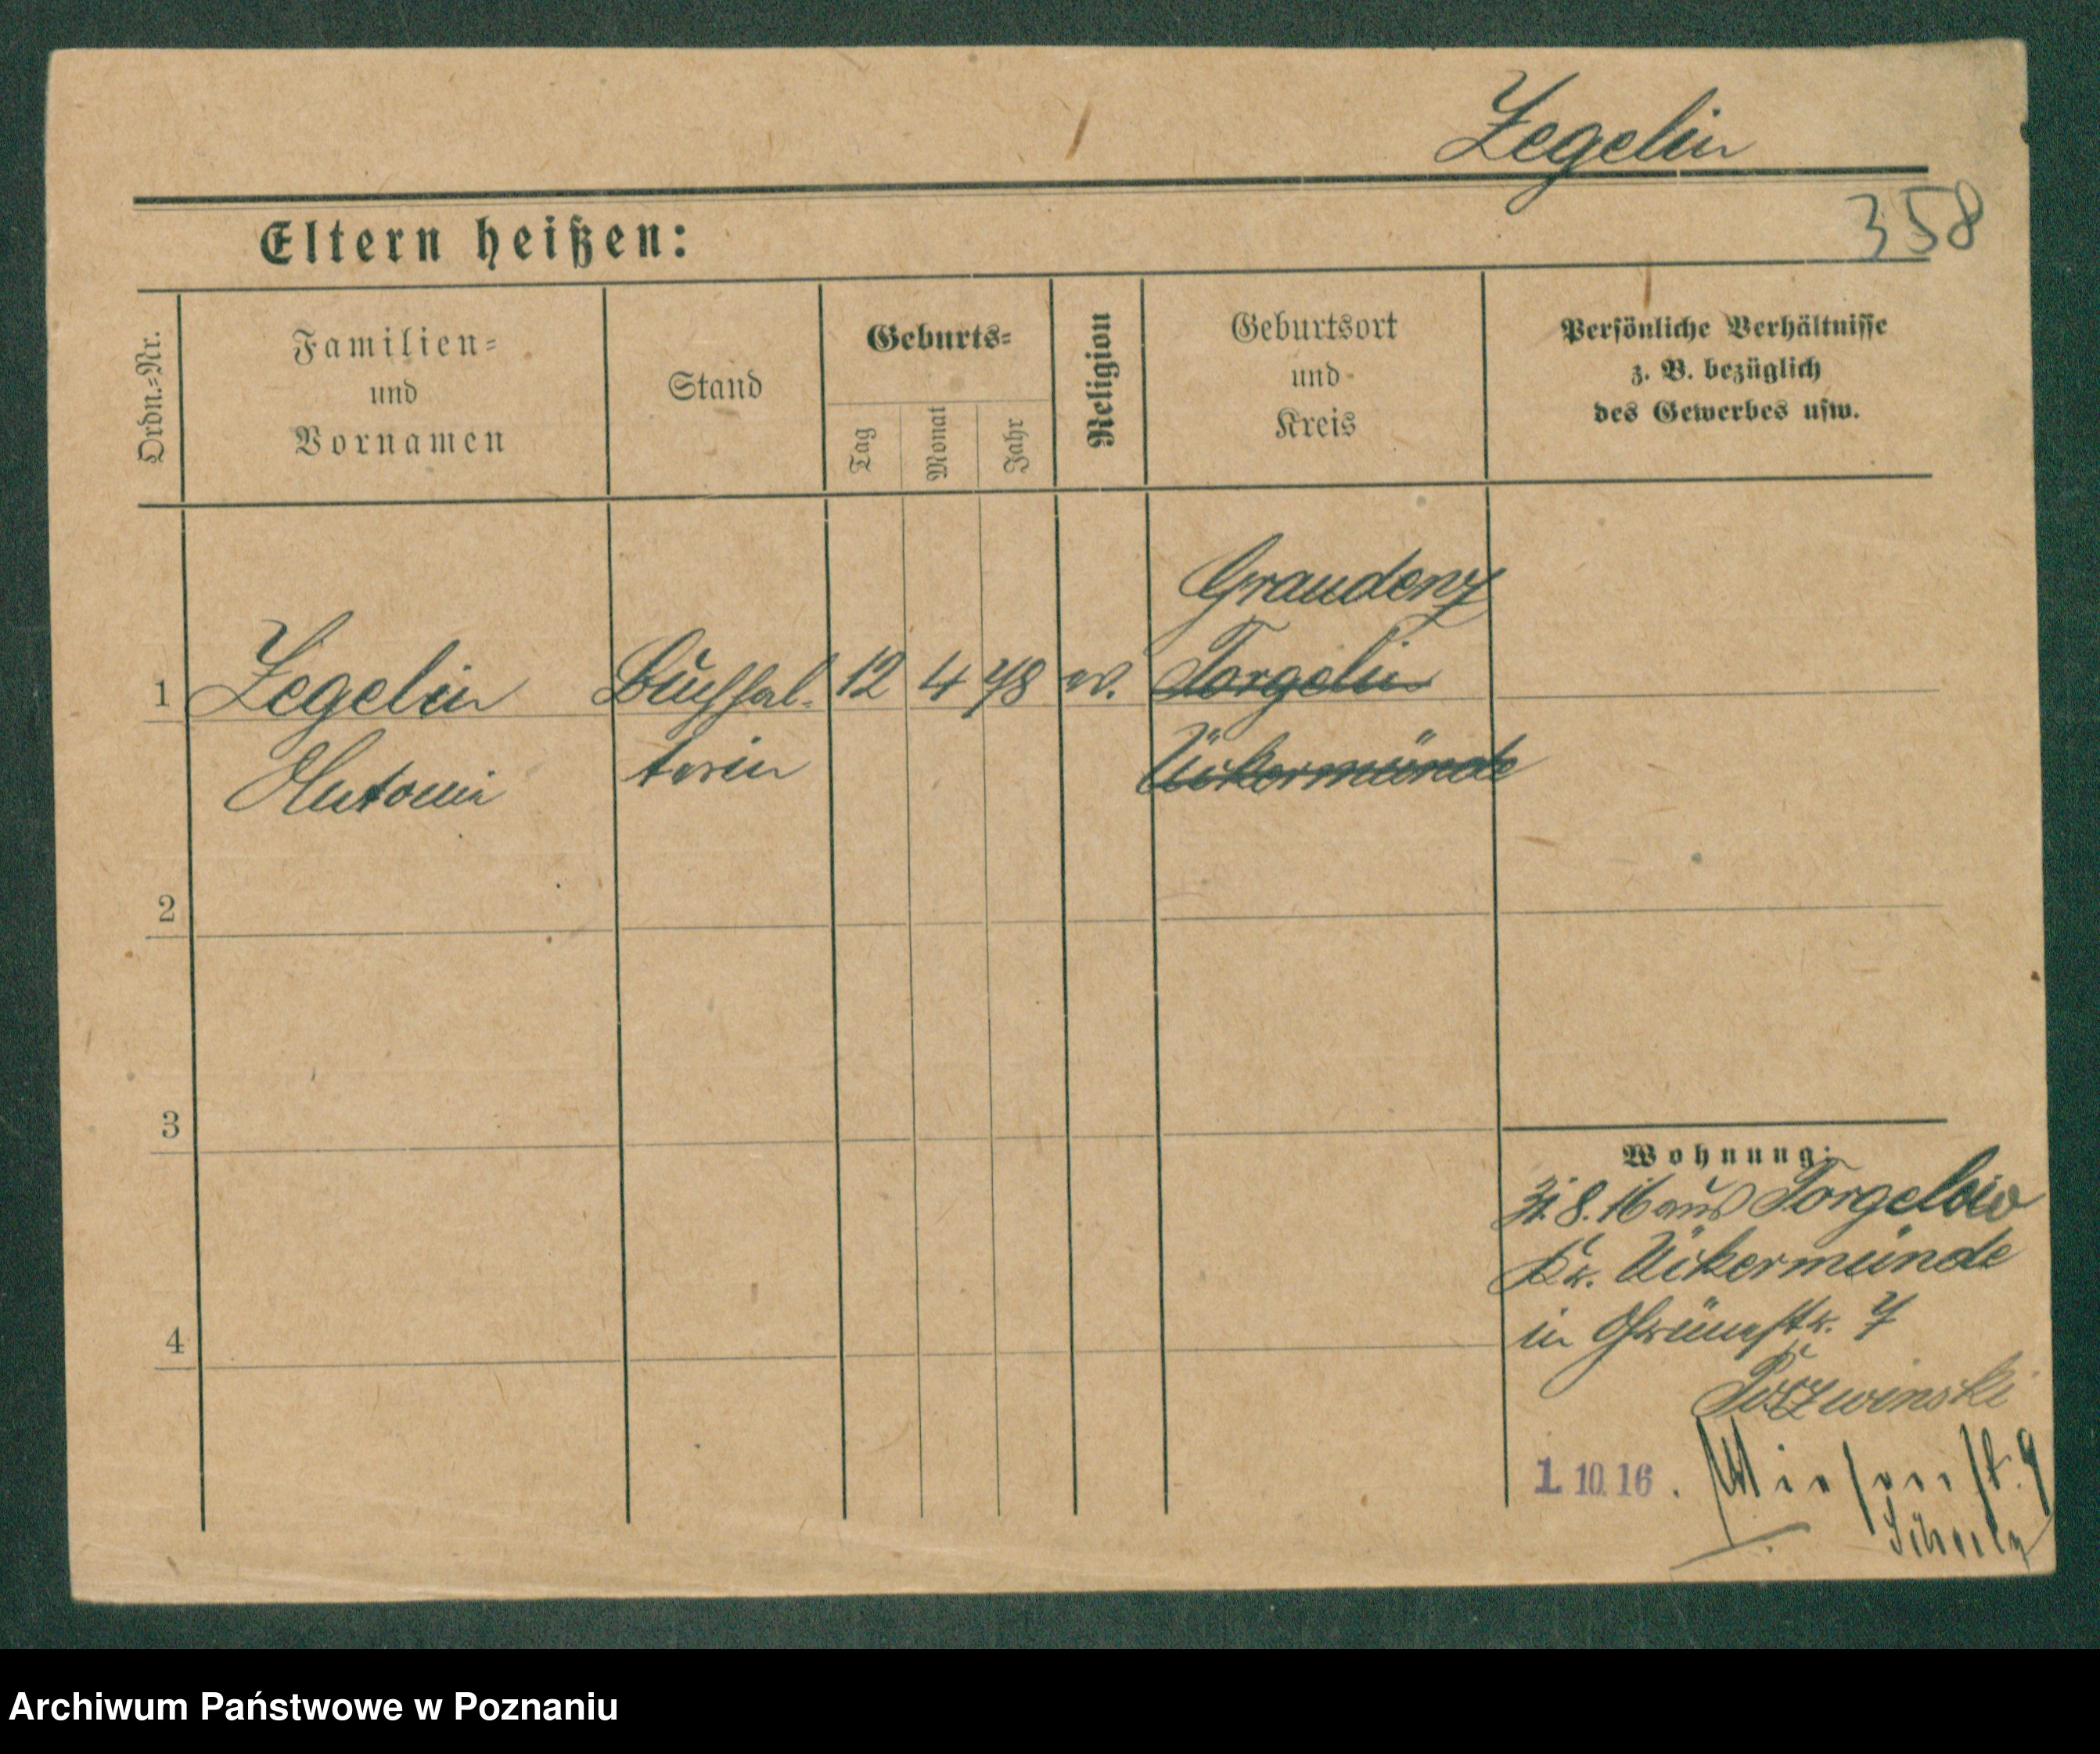 Zegelin
358
Eltern heißen:
Ordn.=Nr.
Familien=
und
Vornamen
Stand
Geburts=
Tag
Monat
Jahr
Religion
Geburtsort
und
Kreis
Persönliche Verhältnisse
z. B. bezüglich
des Gewerbes usw.
Graudenz
1 Zegelin Buchhal- 12 4 78 ev. Torgelin
Antonie terin Ückermünde
2
3
4
Wohnung:
31.8.16 aus Torgelow
Kr. Ückermünde
in Grünestr. 7
1.10.16. Wiesenstr. 9
Scholz